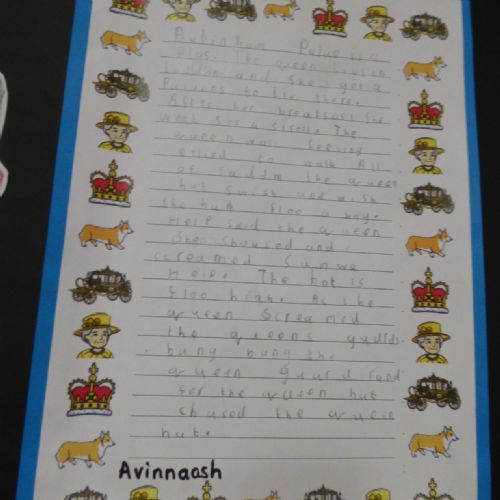 Bukinham Palue is a
Plas. The queen lives in
and she got a
to lie there.
After her breakfast she
went for a stroll. The
queen was feeling
to walk All
of suddin the queen
hat swish and wish
the hat floo a way.
Help said the queen
She shouted and
screamed Sumwe
Help. The hat is
floo high. As the
queen Screamed
the queens guards
hung hung the
queen guard rand
for the queen hat
chased the queen
hat.
Avinnaash